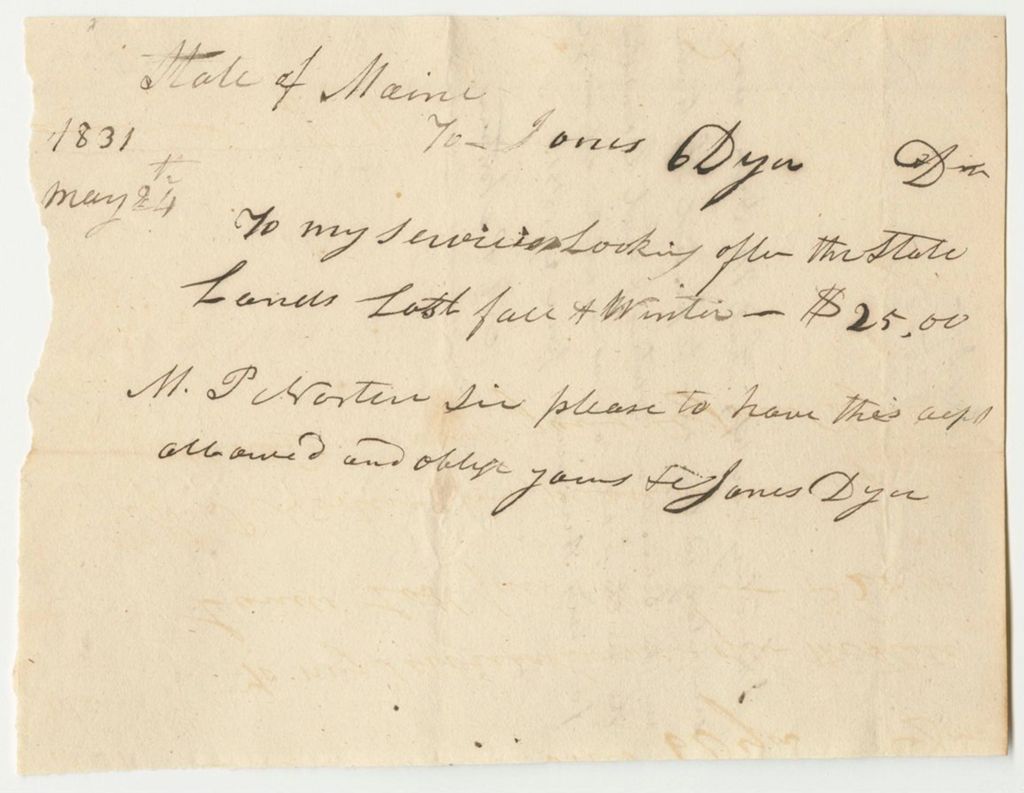 State of Maine
1831 To Jones Dyer Dr
May 24th
To my services Looking after the State
Lands Last fall & Winter — $25.00
M. P Norton Sir please to have this acpt
allowed and oblige yours &c Jones Dyer